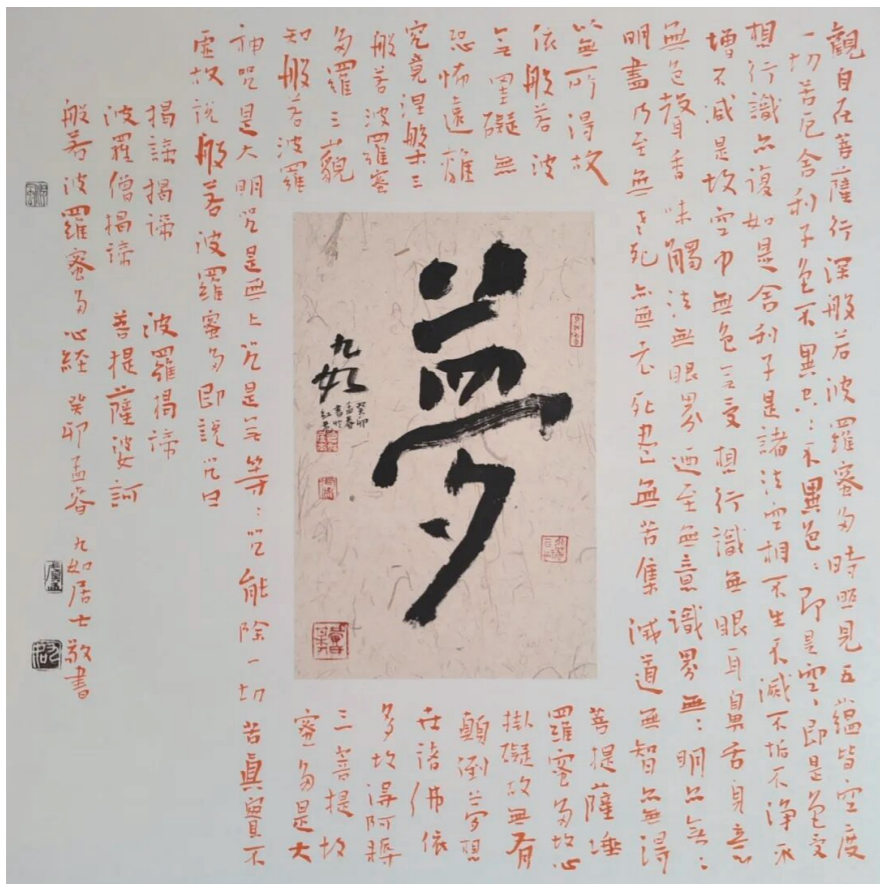 觀自在菩薩行深般若波羅蜜多時照見五蘊皆空度
一切苦厄舍利子色不異空:不異色:即是空:即是色受
想行識亦復如是舍利子是諸法空相不生不滅不垢不淨不
增不減是故空中無色无受想行識無眼耳鼻舌身意
無色聲香味觸法無眼界迺至無意識界無:明亦無:
明盡乃至無老死亦無老死盡無苦集滅道無智亦無得
以無所得故 菩提薩埵
依般若波 羅蜜多故心
无罣礙無 掛礙故無有
恐怖遠離 顛倒夢想
究竟涅般士三 在諸佛依
般若波羅蜜 多故得阿耨
多羅三藐 三菩提故
知般若波羅 蜜多是大
神咒是大明咒是無上咒是无等:咒能除一切苦真實不
虛故說般若波羅蜜多即說咒曰
揭諦揭諦 波羅揭諦
波羅僧揭諦 菩提薩婆訶
般若波羅蜜多心経 癸卯孟春 九如居士敬書
夢
九如
癸卯
孟春
書於